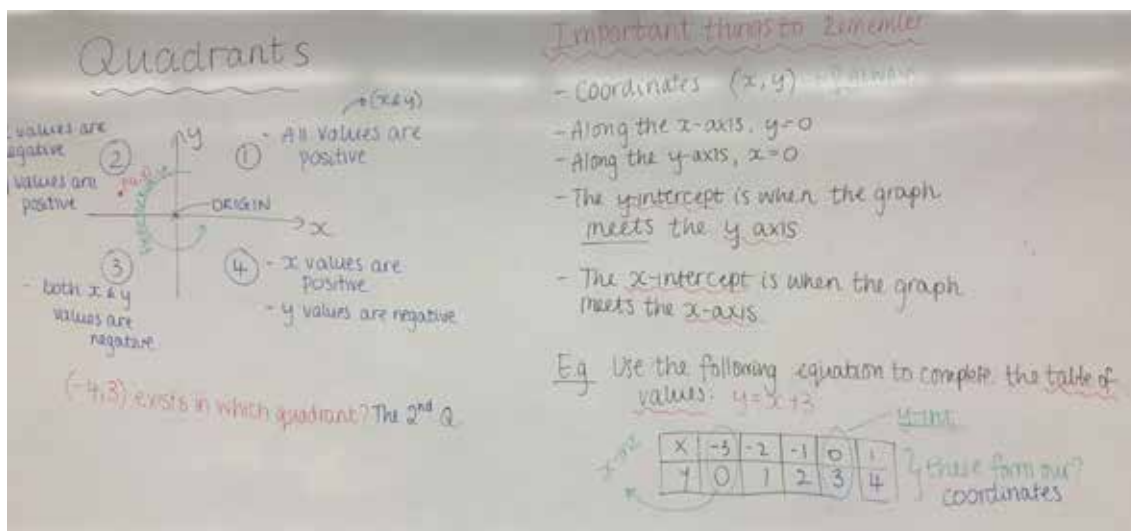 Quadrants
(x & y)
values are
negative
values are
positive
②
y
① - All values are
positive
ORIGIN
x
③
- both x & y
values are
negative
④ - x values are
positive
- y values are negative
(-4,3) exists in which quadrant? The 2nd Q
Important things to remember
- Coordinates (x, y)
- Along the x-axis, y=0
- Along the y-axis, x=0
- The y-intercept is when the graph
meets the y axis
- The x-intercept is when the graph
meets the x-axis.
E.g Use the following equation to complete the table of
values: y=x+3
y-int
x-int
X -3 -2 -1 0 1
Y 0 1 2 3 4
these form our
coordinates